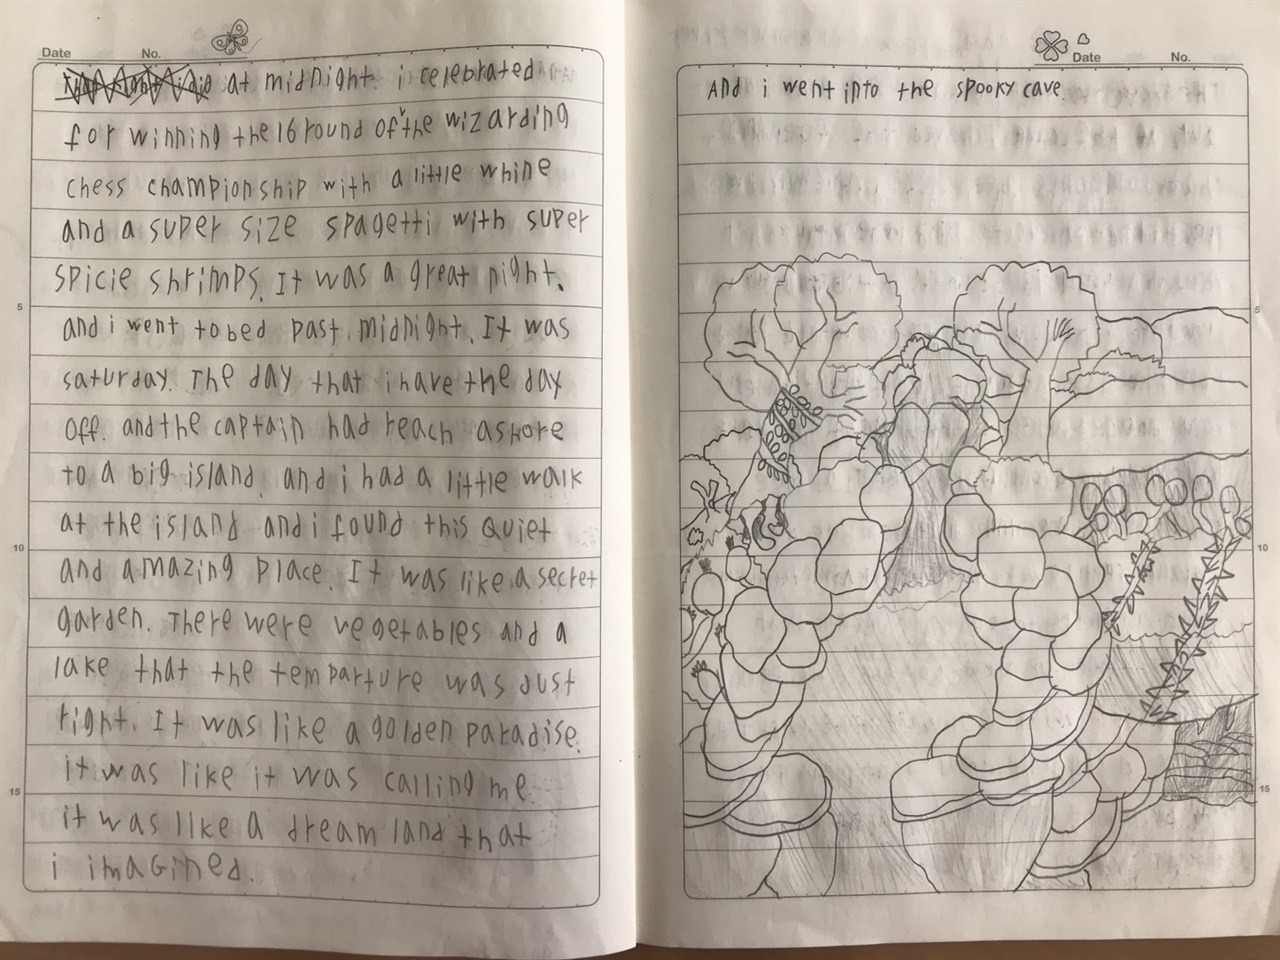 Date No.
at midnight. i celebrated
for winning the 16 round of the wizarding
chess championship with a little whine
and a super size spagetti with super
spicie shrimps. It was a great night.
and i went to bed past midnight. It was
saturday. The day that i have the day
off. and the captain had reach ashore
to a big island. and i had a little walk
at the island and i found this quiet
and amazing place. It was like a secret
garden. There were vegetables and a
lake that the temparture was Just
right. It was like a golden paradise.
it was like it was calling me.
it was like a dream land that
i imagined.
5
10
15
Date No.
And i went into the spooky cave.
5
10
15